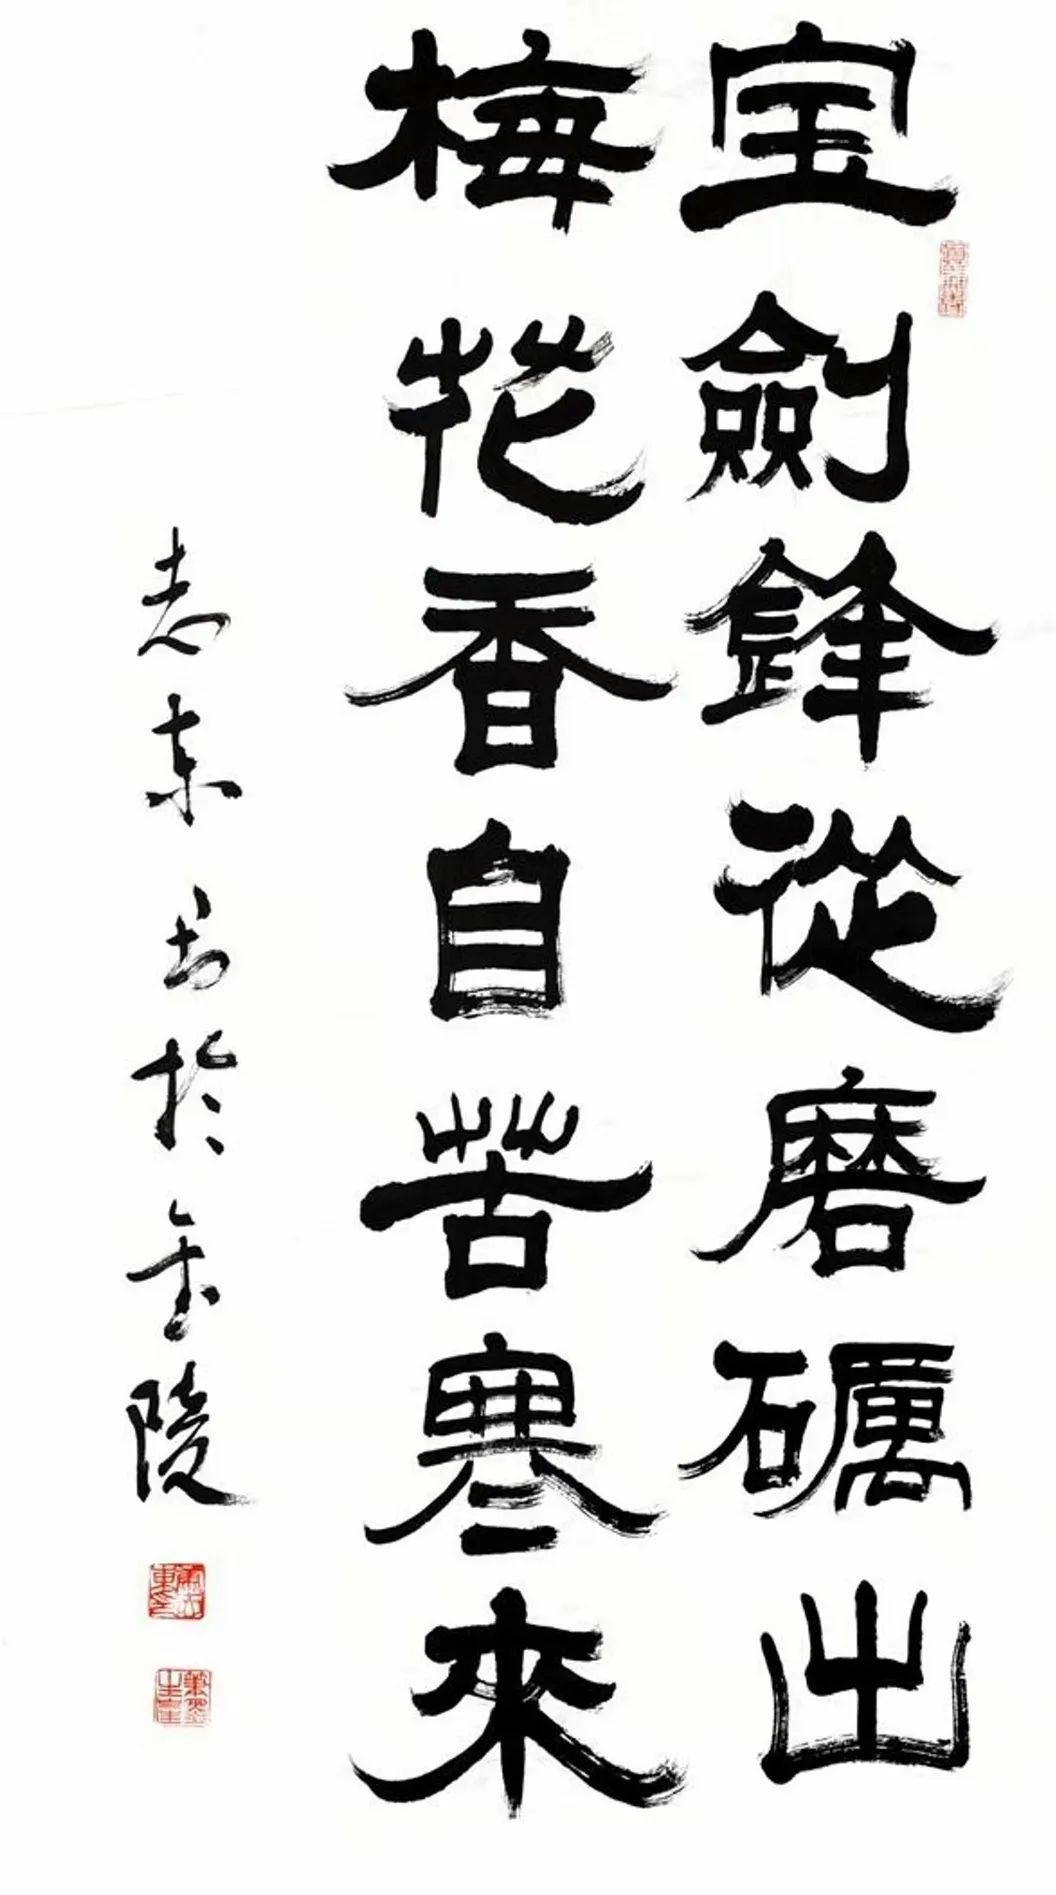 宝劍鋒從磨礪出
梅花香自苦寒來
志東书於金陵